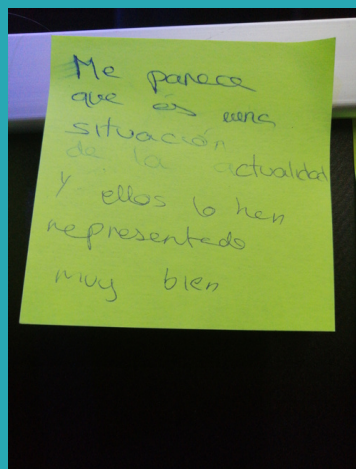 Me parece
que es una
situación
de la actualidad
y ellos lo han
representado
muy bien